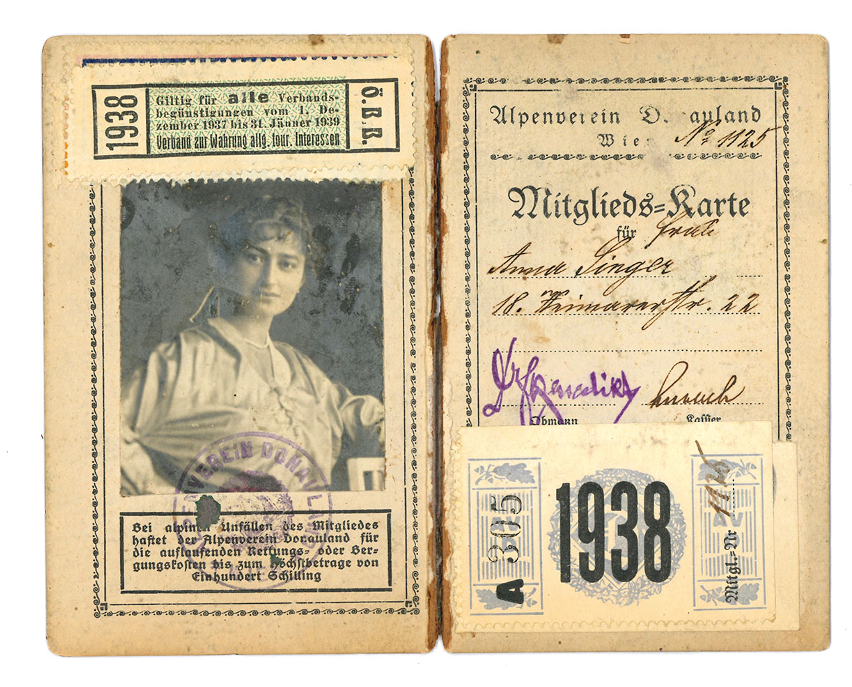 1938
Giltig für alle Verbands-
begünstigungen vom 1. De-
zember 1937 bis 31. Jänner 1939
Verband zur Wahrung allg. tour. Interessen
Ö.B.B.
Bei alpinen Unfällen des Mitgliedes
haftet der Alpenverein Donauland für
die auflaufenden Rettungs- oder Ber-
gungskosten bis zum Höchstbetrage von
Einhundert Schilling
Alpenverein Donauland
Wien
No 1125
Mitglieds-Karte
für Frau
Anna Singer
18. Weimarerstr. 22
Obmann Kassier
A 305
1938
Mitgl.-Nr 1125